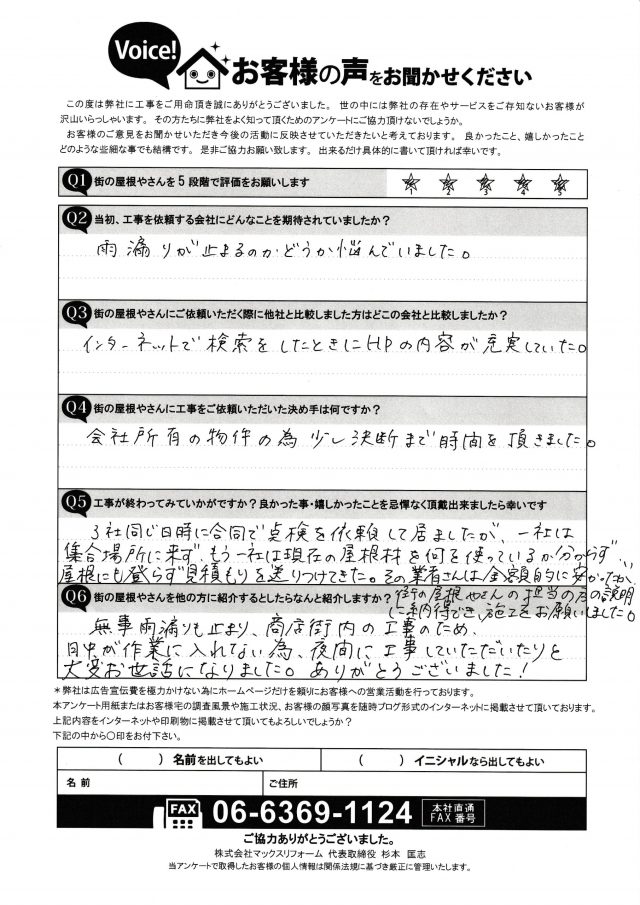 Voice!
お客様の声をお聞かせください
この度は弊社に工事をご用命頂き誠にありがとうございました。世の中には弊社の存在やサービスをご存知ないお客様が
沢山いらっしゃいます。その方たちに弊社をよく知って頂くためのアンケートにご協力頂けないでしょうか。
お客様のご意見をお聞かせいただき今後の活動に反映させていただきたいと考えております。良かったこと、嬉しかったこと
どのような些細な事でも結構です。是非ご協力お願い致します。出来るだけ具体的に書いて頂ければ幸いです。
Q1 街の屋根やさんを5段階で評価をお願いします
1 2 3 4 5
Q2 当初、工事を依頼する会社にどんなことを期待されていましたか?
雨漏りが止まるのかどうか悩んでいました。
Q3 街の屋根やさんにご依頼いただく際に他社と比較しました方はどこの会社と比較しましたか?
インターネットで検索をしたときにHPの内容が充実していた。
Q4 街の屋根やさんに工事をご依頼いただいた決め手は何ですか?
会社所有の物件の為少し決断まで時間を頂きました。
Q5 工事が終わってみていかがですか?良かった事・嬉しかったことを忌憚なく頂戴出来ましたら幸いです
3社同じ日時に合同で点検を依頼して居ましたが、一社は
集合場所に来ず、もう一社は現在の屋根材を何を使っているか分からず、
屋根にも登らず見積もりを送りつけてきた。その業者さんは金額的に安かったが、
街の屋根やさんの担当の方の説明
に納得でき、施工をお願いしました。
Q6 街の屋根やさんを他の方に紹介するとしたらなんと紹介しますか?
無事雨漏りも止まり、商店街内の工事のため、
日中が作業に入れない為、夜間に工事していただいたりと
大変お世話になりました。ありがとうございました!
*弊社は広告宣伝費を極力かけない為にホームページだけを頼りにお客様への営業活動を行っております。
本アンケート用紙またはお客様宅の調査風景や施工状況、お客様の顔写真を随時ブログ形式のインターネットに掲載させて頂いております。
上記内容をインターネットや印刷物に掲載させて頂いてもよろしいでしょうか?
下記の中から○印をお付下さい。
( ) 名前を出してもよい ( ) イニシャルなら出してもよい
名前 ご住所
FAX 06-6369-1124 本社直通 FAX番号
ご協力ありがとうございました。
株式会社マックスリフォーム 代表取締役 杉本 匡志
当アンケートで取得したお客様の個人情報は関係法規に基づき厳正に管理いたします。